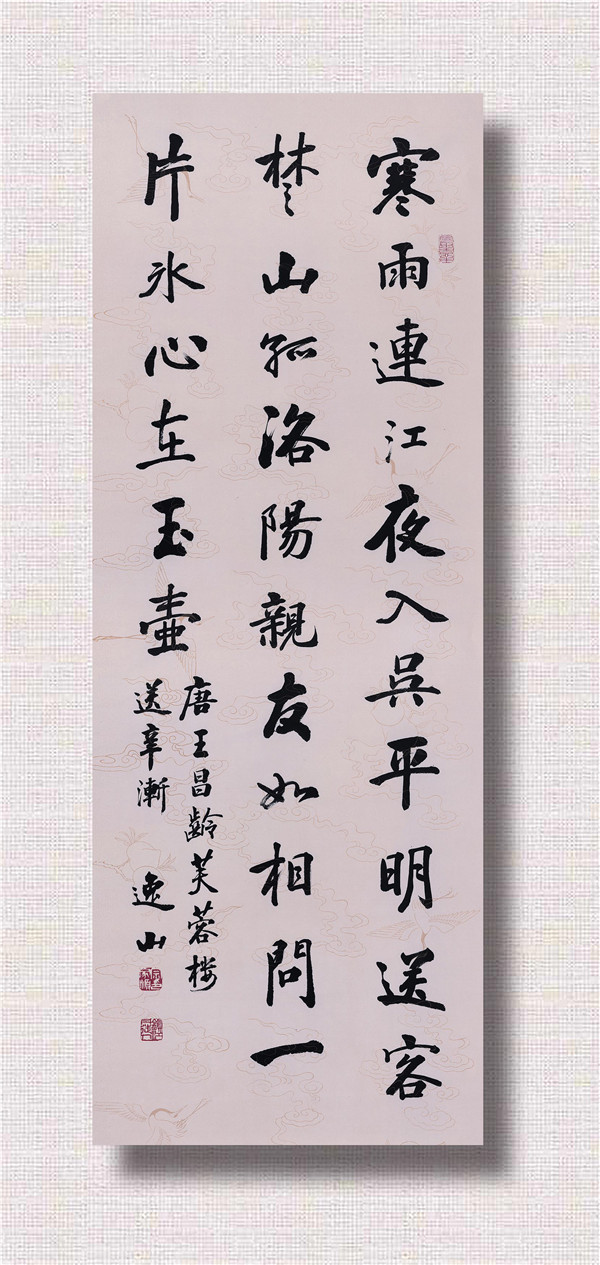 寒雨連江夜入吳平明送客
楚山孤洛陽親友如相問一
片冰心在玉壺
唐王昌齡芙蓉楼
送辛漸 逸山